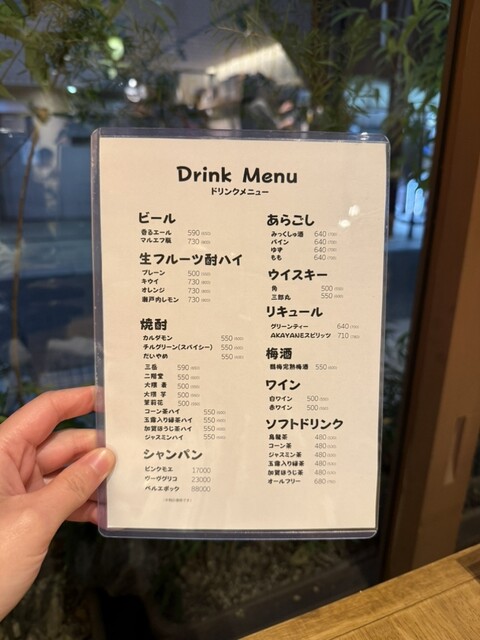 Drink Menu
ドリンクメニュー
ビール
香るエール 590
マルエフ瓶 730
生フルーツ酎ハイ
プレーン 500
キウイ 730
オレンジ 730
瀬戸内レモン 730
焼酎
カルダモン 550
チルグリーン(スパイシー) 550
だいやめ 550
三岳 590
二階堂 550
大隅 麦 500
大隅 芋 500
茉莉花 500
コーン茶ハイ 550
玉露入り緑茶ハイ 550
加賀ほうじ茶ハイ 550
ジャスミンハイ 550
シャンパン
ピンクモエ 17000
ヴーヴグリコ 23000
ベルエポック 88000
あらごし
みっくしゅ酒 640
パイン 640
ゆず 640
もも 640
ウイスキー
角 500
三郎丸 550
リキュール
グリーンティー 640
AKAYANEスピリッツ 710
梅酒
鶴梅完熟梅酒 550
ワイン
白ワイン 500
赤ワイン 500
ソフトドリンク
烏龍茶 480
コーン茶 480
ジャスミン茶 480
玉露入り緑茶 480
加賀ほうじ茶 480
オールフリー 680